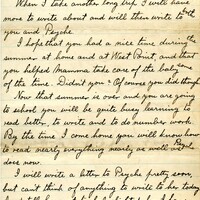 When I take another long trip I will have
more to write about and will then write to both
you and Psyche.
I hope that you had a nice time during the
summer at home and at West Point, and that
you helped Mamma take care of the bab
of the time. Didn't you? Of course you did though
Now that summer is over and you are going
to school you will be quite busy learning to
read better, to write and to do number work.
By the time I come home you will know how
to read nearly everything nearly as well Psyche
does now.
I will write a letter to Psyche pretty soon,
but can't think of anything to write to her today